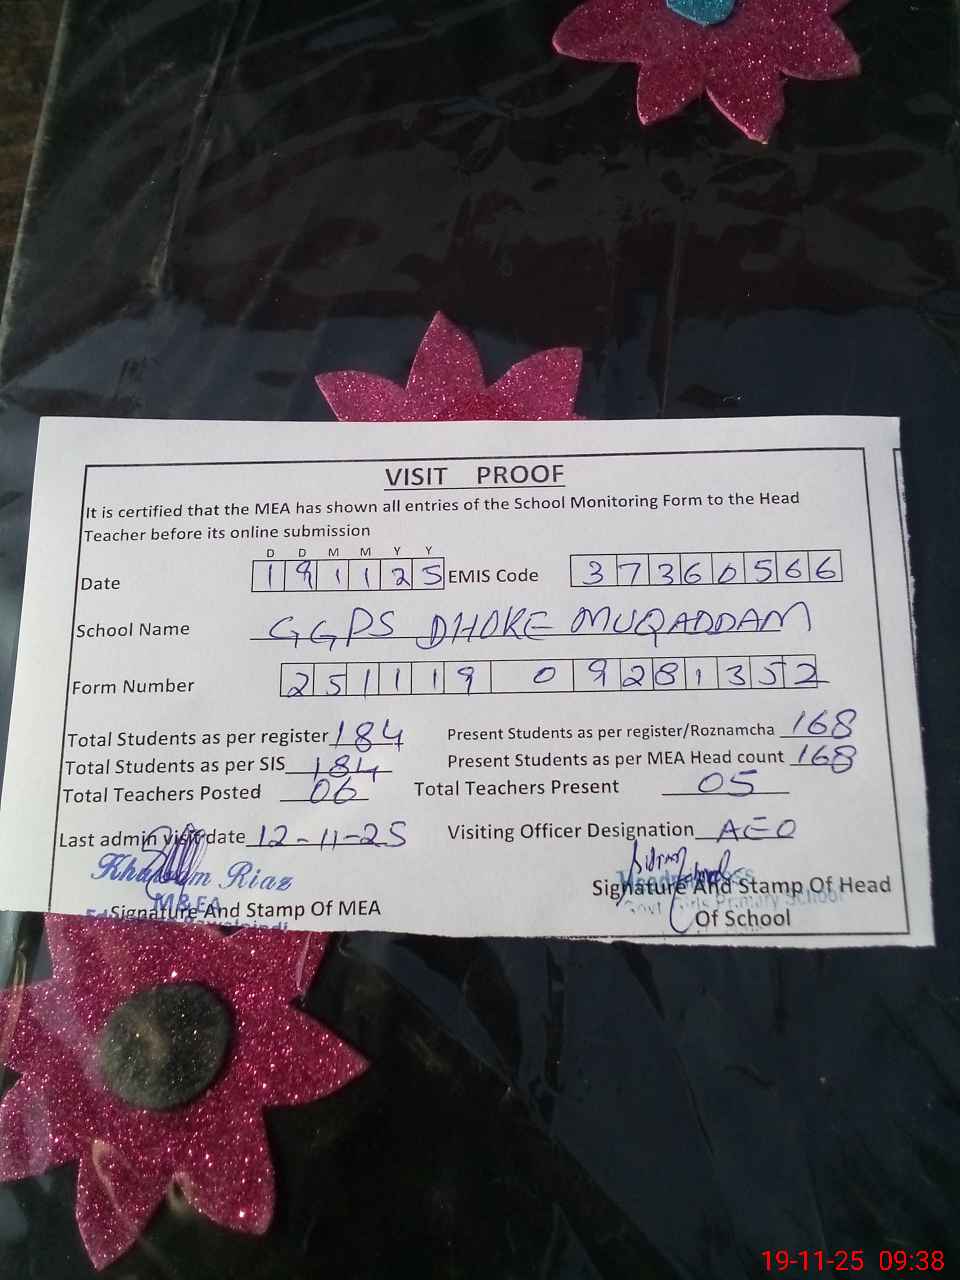 VISIT PROOF
It is certified that the MEA has shown all entries of the School Monitoring Form to the Head
Teacher before its online submission
D D M M Y Y
Date 191125 EMIS Code 37360566
School Name GGPS DHOKE MUQADDAM
Form Number 251119 0 9281352
Total Students as per register 184 Present Students as per register/Roznamcha 168
Total Students as per SIS 184 Present Students as per MEA Head count 168
Total Teachers Posted 06 Total Teachers Present 05
Last admin visit date 12-11-25 Visiting Officer Designation AEO
Riaz
Signature And Stamp Of MEA
Signature And Stamp Of Head
Govt Girls Primary School
Of School
19-11-25 09:38